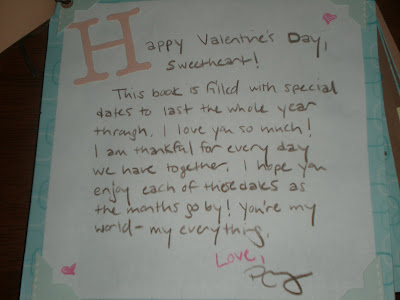 Happy Valentine's Day,
Sweetheart!
This book is filled with special
dates to last the whole year
through. I love you so much!
I am thankful for every day
we have together. I hope you
enjoy each of these dates as
the months go by! You're my
world - my everything.
Love,